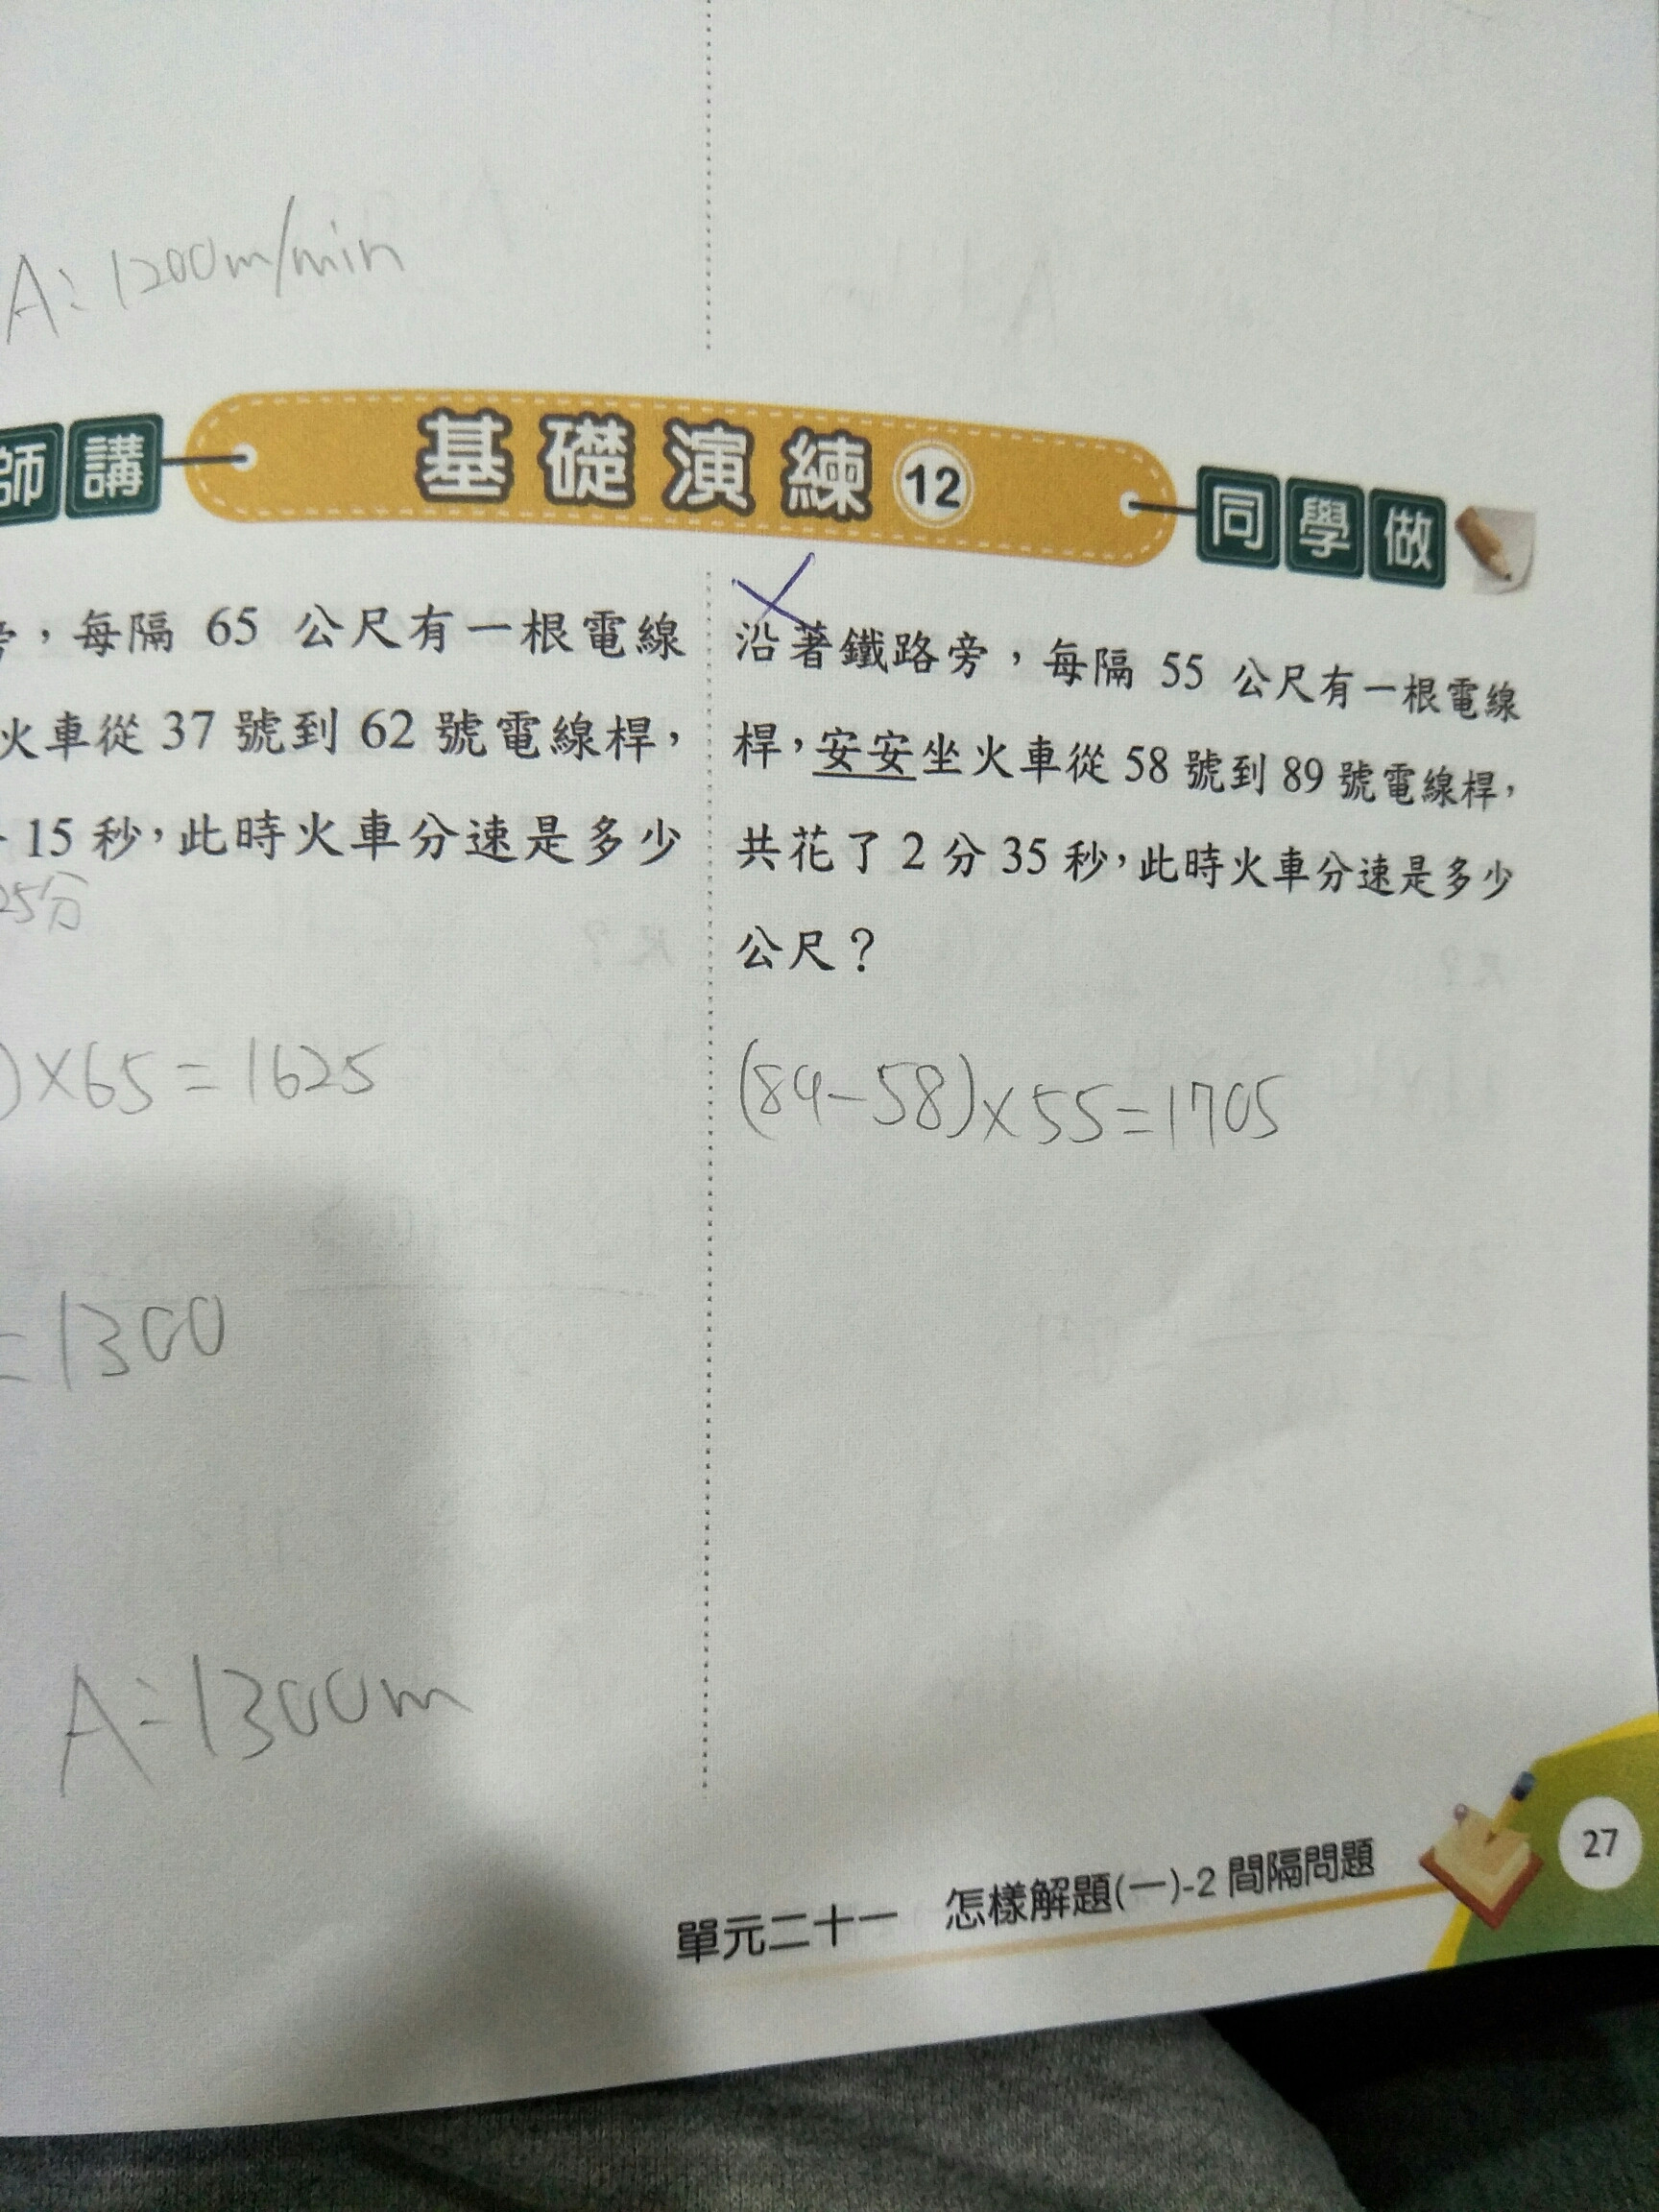 A: 1200m/min
師講
基礎演練 12
同學做
，每隔 65 公尺有一根電線
火車從 37 號到 62 號電線桿，
15 秒，此時火車分速是多少
25分
)×65=1625
=1300
A:1300m
沿著鐵路旁，每隔 55 公尺有一根電線
桿，安安坐火車從 58 號到 89 號電線桿，
共花了 2 分 35 秒，此時火車分速是多少
公尺？
(89-58)×55=1705
單元二十一 怎樣解題(一)-2 間隔問題
27